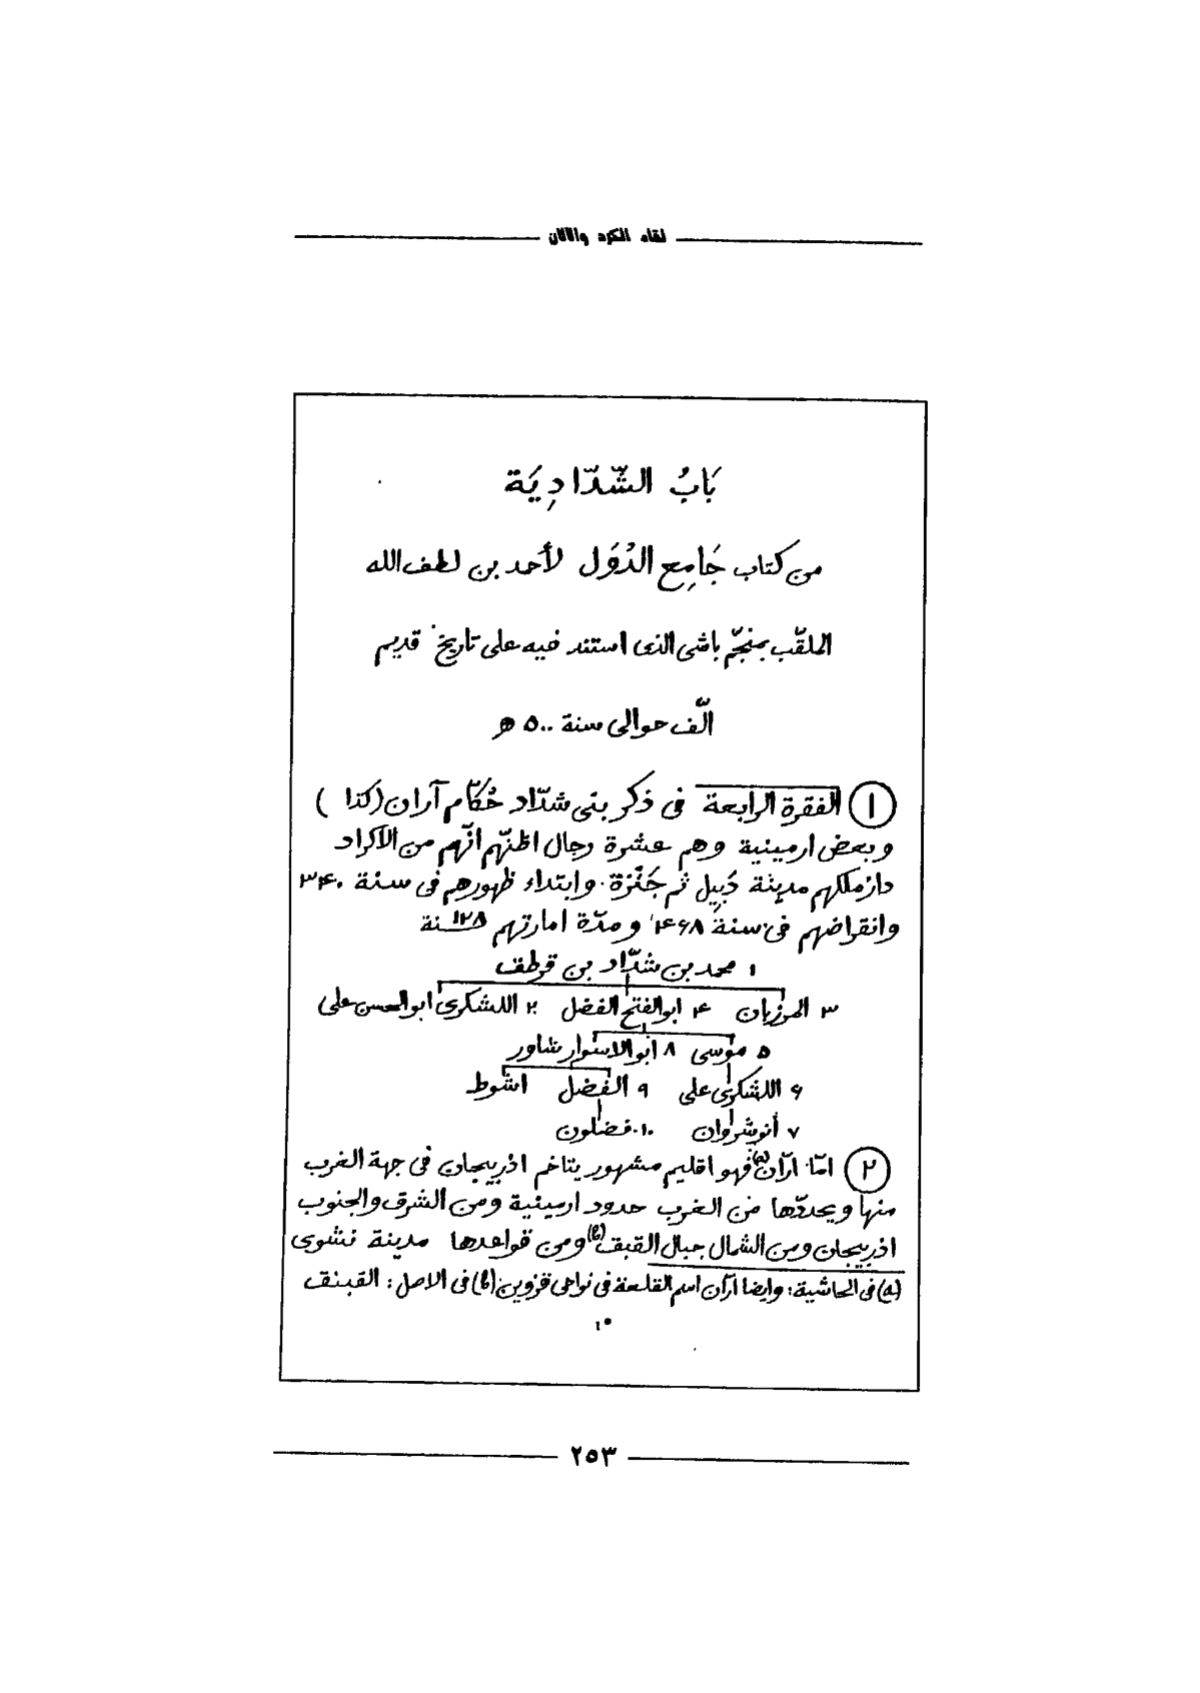 لقاء الكرد واللان
بَابُ الشَّدّادِيَة
من كتاب جَامِع الدُوَل لأحمد بن لطف الله
الملقّب بمنجّم باشى الذى استند فيه على تاريخ قديم
الّف حوالى سنة ٥٠٠ هـ
١ الفقرة الرابعة فى ذكر بنى شدّاد حُكّام آران (كذا )
وبعض ارمينية وهم عشرة رجال اظنّهم انّهم من الاكراد
دار ملكهم مدينة دَبِيل ثم جَنْزَة. وابتداء ظهورهم فى سنة ٣۴٠
وانقراضهم فى سنة ۴۶٨ ومدّة امارتهم ١٢٨ سنة
١ محمد بن شدّاد بن قرطف
٣ المرزبان ۴ ابوالفتح الفضل ٢ اللشكرى ابوالحسن على
٥ موسى ٨ ابوالاسوار شاور
۶ اللشكرى على ٩ الفضل اشوط
٧ أنوشروان ١٠. فضلون
٢ امّا ارّان(a) فهو اقليم مشهور يتاخم اذربيجان فى جهة الغرب
منها ويحدّدها من الغرب حدود ارمينية ومن الشرق والجنوب
اذربيجان ومن الشمال جبال القبق(b) ومن قواعدها مدينة نشوى
(a) فى الحاشية: وايضا ارّان اسم القلعة فى نواحى قزوين (b) فى الاصل: القبنق
٢٥٣